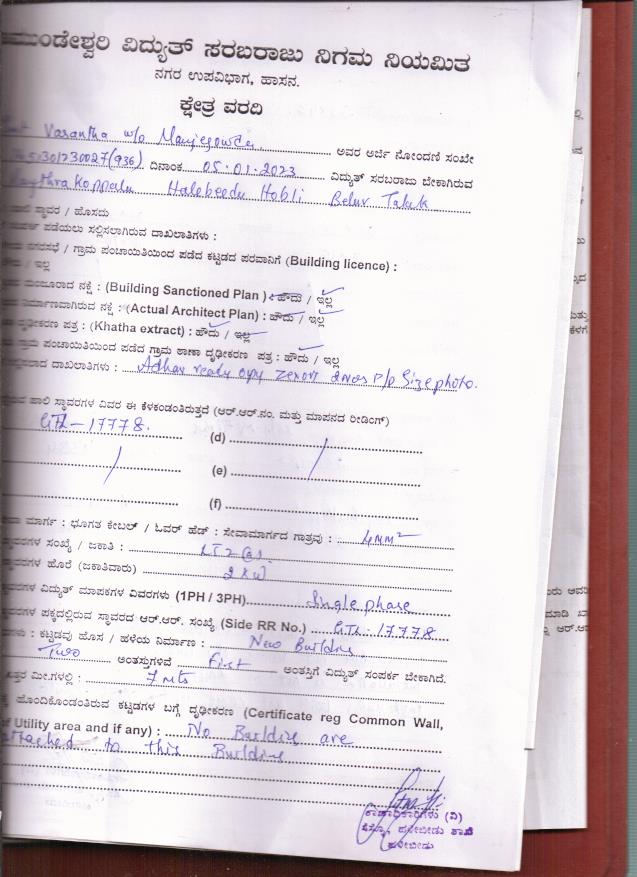 ಮುಂಡೇಶ್ವರಿ ವಿದ್ಯುತ್ ಸರಬರಾಜು ನಿಗಮ ನಿಯಮಿತ
ನಗರ ಉಪವಿಭಾಗ, ಹಾಸನ.
ಕ್ಷೇತ್ರ ವರದಿ
Vasantha w/o Manjegowda ಅವರ ಅರ್ಜಿ ನೋಂದಣಿ ಸಂಖೇ
301230027(936) ದಿನಾಂಕ 05.01.2023 ವಿದ್ಯುತ್ ಸರಬರಾಜು ಬೇಕಾಗಿರುವ
Koppalu Halebeedu Hobli Belur Taluk
ಸ್ಥಾವರ / ಹೊಸದು
ಪಡೆಯಲು ಸಲ್ಲಿಸಲಾಗಿರುವ ದಾಖಲಾತಿಗಳು :
/ ಗ್ರಾಮ ಪಂಚಾಯಿತಿಯಿಂದ ಪಡೆದ ಕಟ್ಟಡದ ಪರವಾನಿಗೆ (Building licence) :
/ ಇಲ್ಲ
ಮಂಜೂರಾದ ನಕ್ಷೆ : (Building Sanctioned Plan ) : ಹೌದು / ಇಲ್ಲ
ನಿರ್ಮಾಣವಾಗಿರುವ ನಕ್ಷೆ : (Actual Architect Plan) : ಹೌದು / ಇಲ್ಲ
ದೃಢೀಕರಣ ಪತ್ರ : (Khatha extract) : ಹೌದು / ಇಲ್ಲ
ಗ್ರಾಮ ಪಂಚಾಯಿತಿಯಿಂದ ಪಡೆದ ಗ್ರಾಮ ಠಾಣಾ ದೃಢೀಕರಣ ಪತ್ರ : ಹೌದು / ಇಲ್ಲ
ದಾಖಲಾತಿಗಳು : P/p Size photo.
ಸ್ಥಾವರಗಳ ವಿವರ ಈ ಕೆಳಕಂಡಂತಿರುತ್ತದೆ (ಆರ್.ಆರ್.ನಂ. ಮತ್ತು ಮಾಪನದ ರೀಡಿಂಗ್)
17778. (d)
(e)
(f)
ಮಾರ್ಗ : ಭೂಗತ ಕೇಬಲ್ / ಓವರ್ ಹೆಡ್ : ಸೇವಾಮಾರ್ಗದ ಗಾತ್ರವು : 4mm²
ಸ್ಥಾವರಗಳ ಸಂಖ್ಯೆ / ಜಕಾತಿ :
ಸ್ಥಾವರಗಳ ಹೊರೆ (ಜಕಾತಿವಾರು) 2 KW
ವಿದ್ಯುತ್ ಮಾಪಕಗಳ ವಿವರಗಳು (1PH / 3PH) Single phase
ಪಕ್ಕದಲ್ಲಿರುವ ಸ್ಥಾವರದ ಆರ್.ಆರ್. ಸಂಖ್ಯೆ (Side RR No.) 17778
: ಕಟ್ಟಡವು ಹೊಸ / ಹಳೆಯ ನಿರ್ಮಾಣ : New Building
Two ಅಂತಸ್ತುಗಳಿವೆ First ಅಂತಸ್ತಿಗೆ ವಿದ್ಯುತ್ ಸಂಪರ್ಕ ಬೇಕಾಗಿದೆ.
ಎತ್ತರ ಮೀ.ಗಳಲ್ಲಿ : 7 mts
ಹೊಂದಿಕೊಂಡಂತಿರುವ ಕಟ್ಟಡಗಳ ಬಗ್ಗೆ ದೃಢೀಕರಣ (Certificate reg Common Wall,
of Utility area and if any) : No Building are
attached to this Building
(ವಿ)
ಹಳೇಬೀಡು ಶಾಖೆ
ಹಳೇಬೀಡು